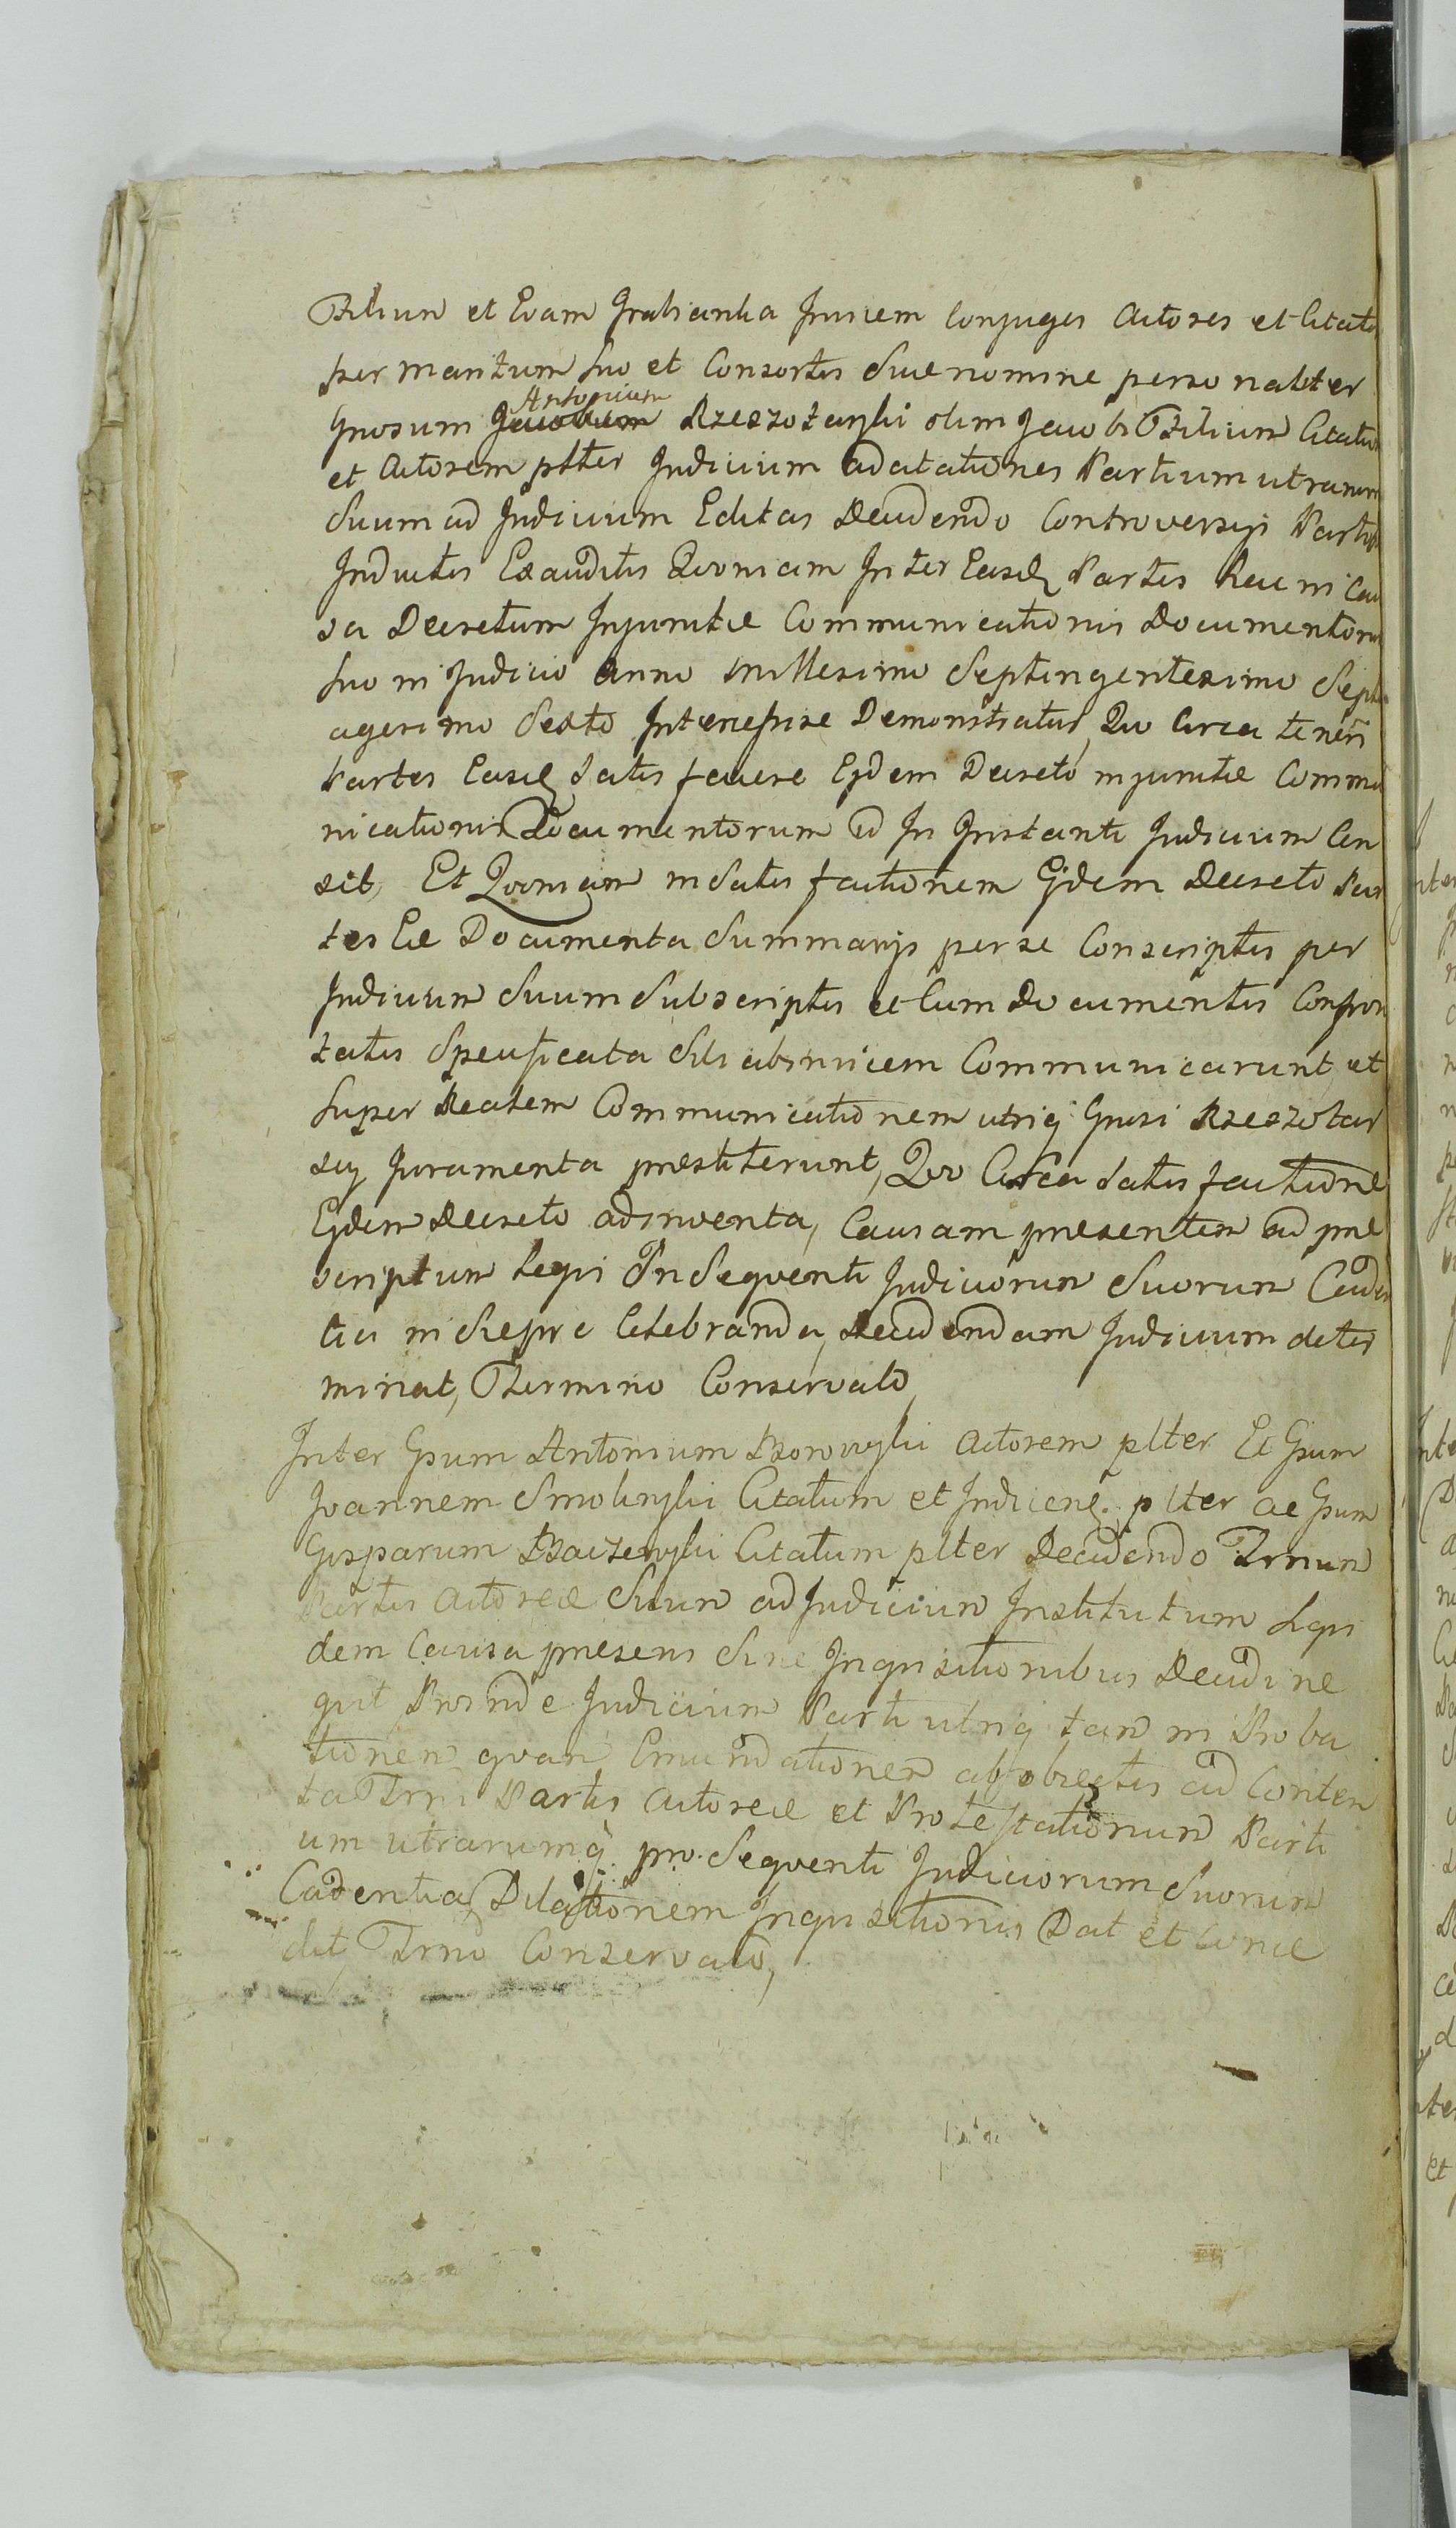 Filium et Evam Grabianka Invicem Conjuges Actores et Citatos
per maritum suo et Consortis Suæ nomine personaliter
Gnosum Antonium Rzeszotarski olim Jacobi Filium Citatum
et Actorem plter Judicium ad citationes Partium utrarum
Suum ad Judicium Editas Decidendo Controversijs Partium
Inductis Exauditis Qvoniam Inter Easd Partes hac in Cau
sa Decretum Injunctæ Communicationis Documentorum
suo in Judicio anno millesimo Septingentesimo Septu
agesimo Sexto Intercessisse Demonstratur, Qvo Circa teneri
Partes Easd satis facere Ejdem Decreto injunctæ Commu
nicationis Documentorum id In Instanti Judicium Cen
sit, Et Qvoniam in satis factionem Ejdem Decreto Par
tes Eæ Documenta Summarijs per se Conscriptis per
Judicium Suum Subscriptis et Cum Documentis Confron
tatis Specificata Sibi ab invicem Communicarunt, et
super Realem Communicationem utriq Gnosi Rzeszotar
scy Juramenta præstiterunt, Qvo Circa satis factione
Ejdem Decreto adinventa, Causam presentem ad præ
scriptum Legis In Seqventi Judiciorum Suorum Caden
tia in Sierpc Celebranda, Decidendam Judicium deter
minat, Termino Conservato,
Inter Gsum Antonium Borowski Actorem plter Et Gsum
Joannem Smolinski Citatum et Indicend. plter ac Gsum
Gasparum Baczewski Citatum plter Decidendo Trnum
Partis Actoreæ Suum ad Judicium Institutum Siqvi
dem Causa presens Sine Inqvisitionibus Decidi ne
qvit Proinde Judicium Parti utriq tam in Proba
tionem qvam Emundationem ab obiectis ad Conten
ta Trni Partis Actoreæ et Protestationum Parti
um utrarumq pro Seqventi Judiciorum Suorum
Cadentia, Dilationem Inqvisitionis Dat et Conce
dit, Trno Conservato,